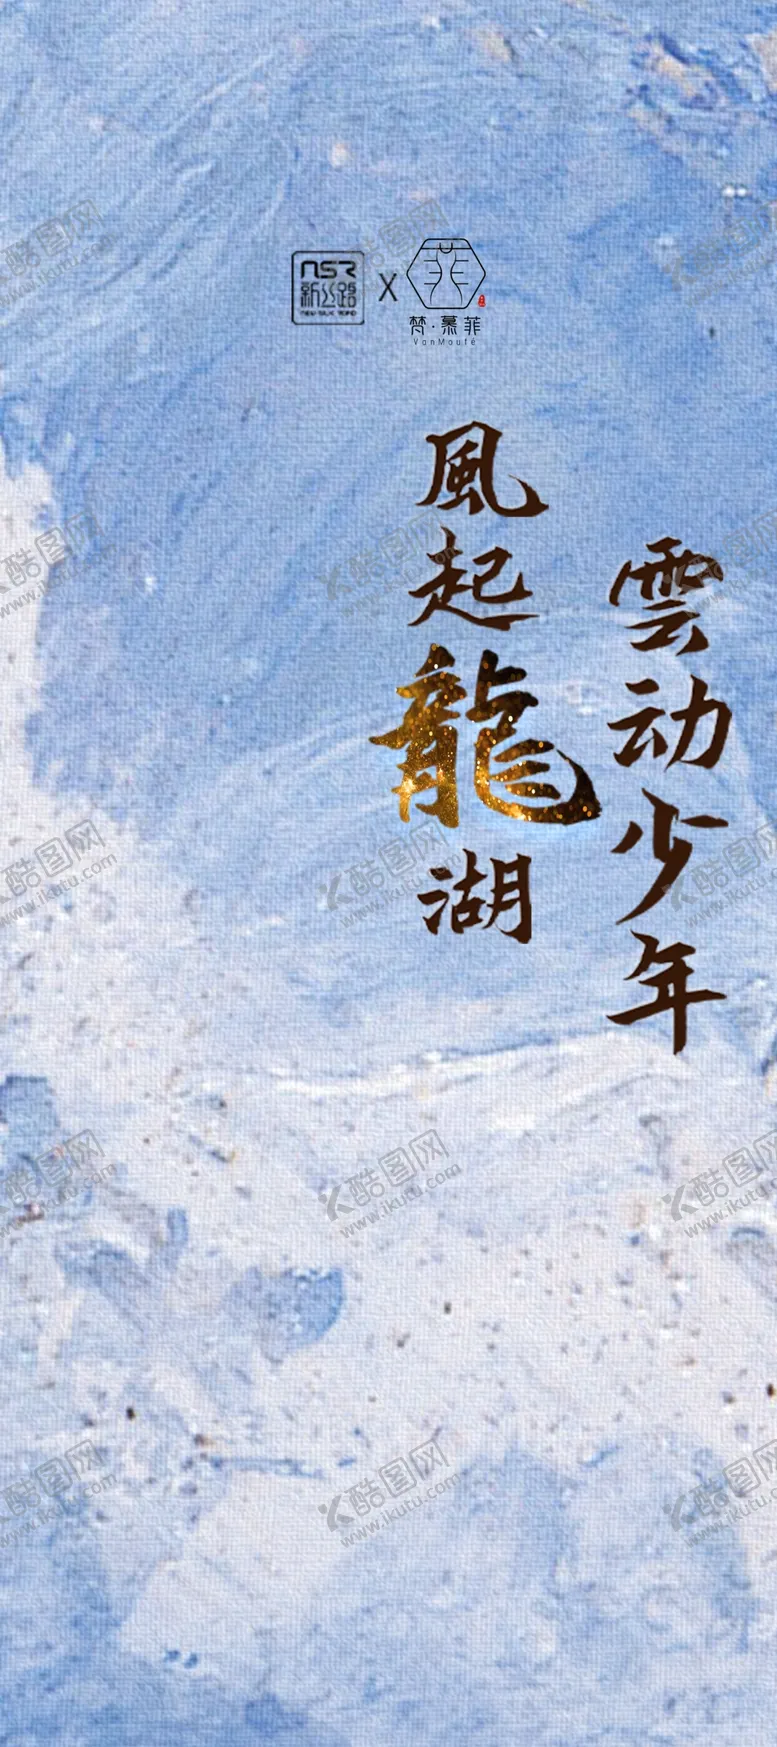 NSR
新丝路
NEW SILK ROAD
X
梵·慕菲
VanMoufé
風起龍湖
雲动少年
酷图网
www.ikutu.com